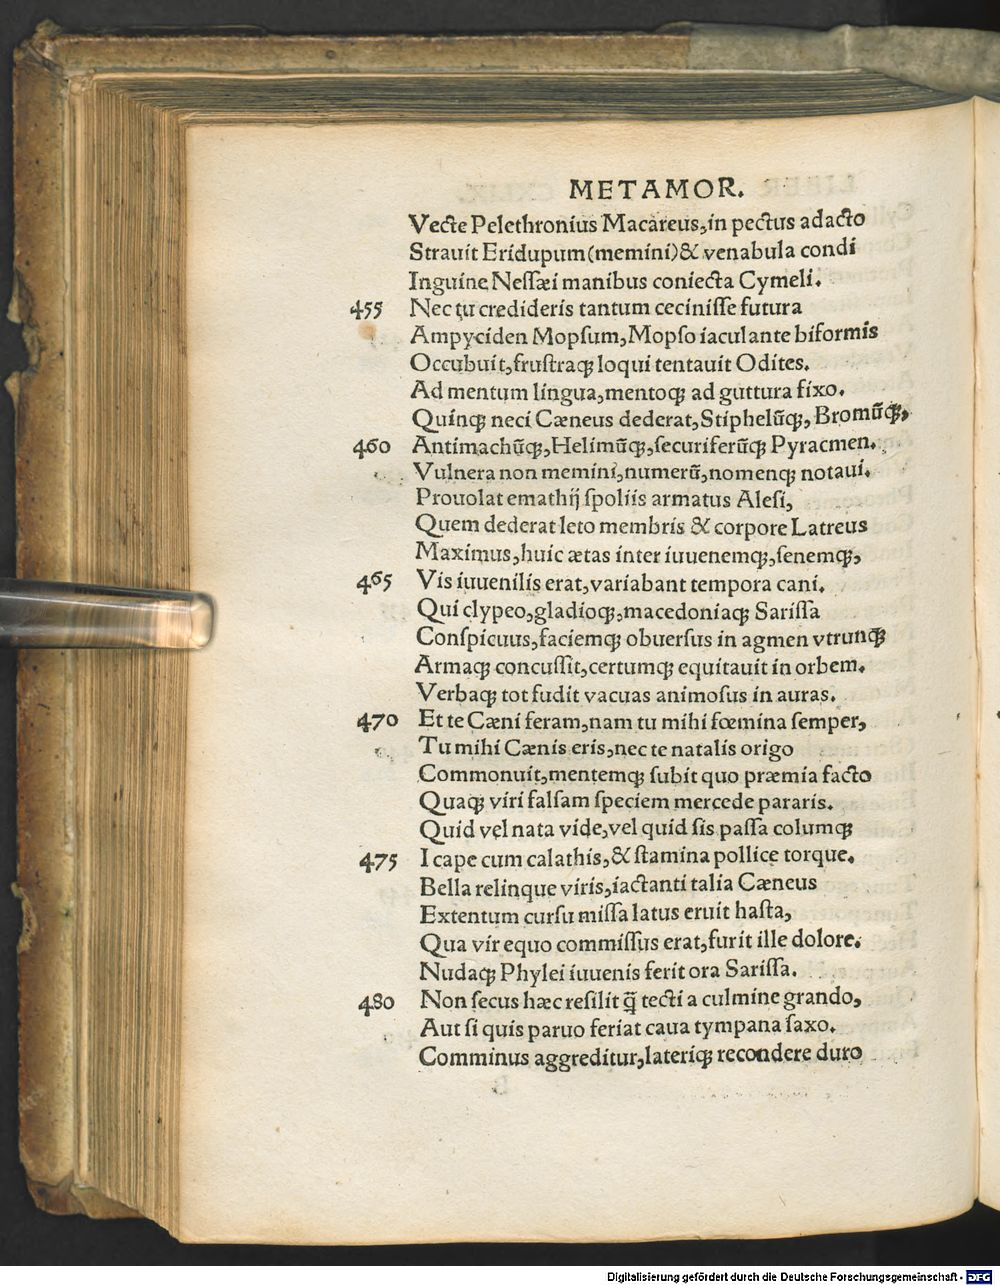 METAMOR.
Vecte Pelethronius Macareus,in pectus adacto
Strauit Eridupum(memini)& venabula condi
Inguine Neſſæi manibus coniecta Cymeli.
455 Nec tu credideris tantum ceciniſſe futura
Ampyciden Mopſum,Mopſo iaculante biformis
Occubuit,fruſtraqꝫ loqui tentauit Odites.
Ad mentum lingua,mentoqꝫ ad guttura fixo.
Quinqꝫ neci Cæneus dederat,Stiphelūqꝫ,Bromūqꝫ,
460 Antimachūqꝫ,Helimūqꝫ,ſecuriferūqꝫ Pyracmen.
Vulnera non memini,numerū,nomenqꝫ notaui.
Prouolat emathij ſpoliis armatus Aleſi,
Quem dederat leto membris & corpore Latreus
Maximus,huic ætas inter iuuenemqꝫ,ſenemqꝫ,
465 Vis iuuenilis erat,variabant tempora cani.
Qui clypeo,gladioqꝫ,macedoniaqꝫ Sariſſa
Conſpicuus,faciemqꝫ obuerſus in agmen vtrunqꝫ
Armaqꝫ concuſſit,certumqꝫ equitauit in orbem.
Verbaqꝫ tot fudit vacuas animoſus in auras.
470 Et te Cæni feram,nam tu mihi fœmina ſemper,
Tu mihi Cænis eris,nec te natalis origo
Commonuit,mentemqꝫ ſubit quo præmia facto
Quaqꝫ viri falſam ſpeciem mercede pararis.
Quid vel nata vide,vel quid ſis paſſa columqꝫ
475 I cape cum calathis,& ſtamina pollice torque.
Bella relinque viris,iactanti talia Cæneus
Extentum curſu miſſa latus eruit haſta,
Qua vir equo commiſſus erat,furit ille dolore.
Nudaqꝫ Phylei iuuenis ferit ora Sariſſa.
480 Non ſecus hæc reſilit q̄ tecti a culmine grando,
Aut ſi quis paruo feriat caua tympana ſaxo.
Comminus aggreditur,lateriqꝫ recondere duro
Digitalisierung gefördert durch die Deutsche Forschungsgemeinschaft - DFG